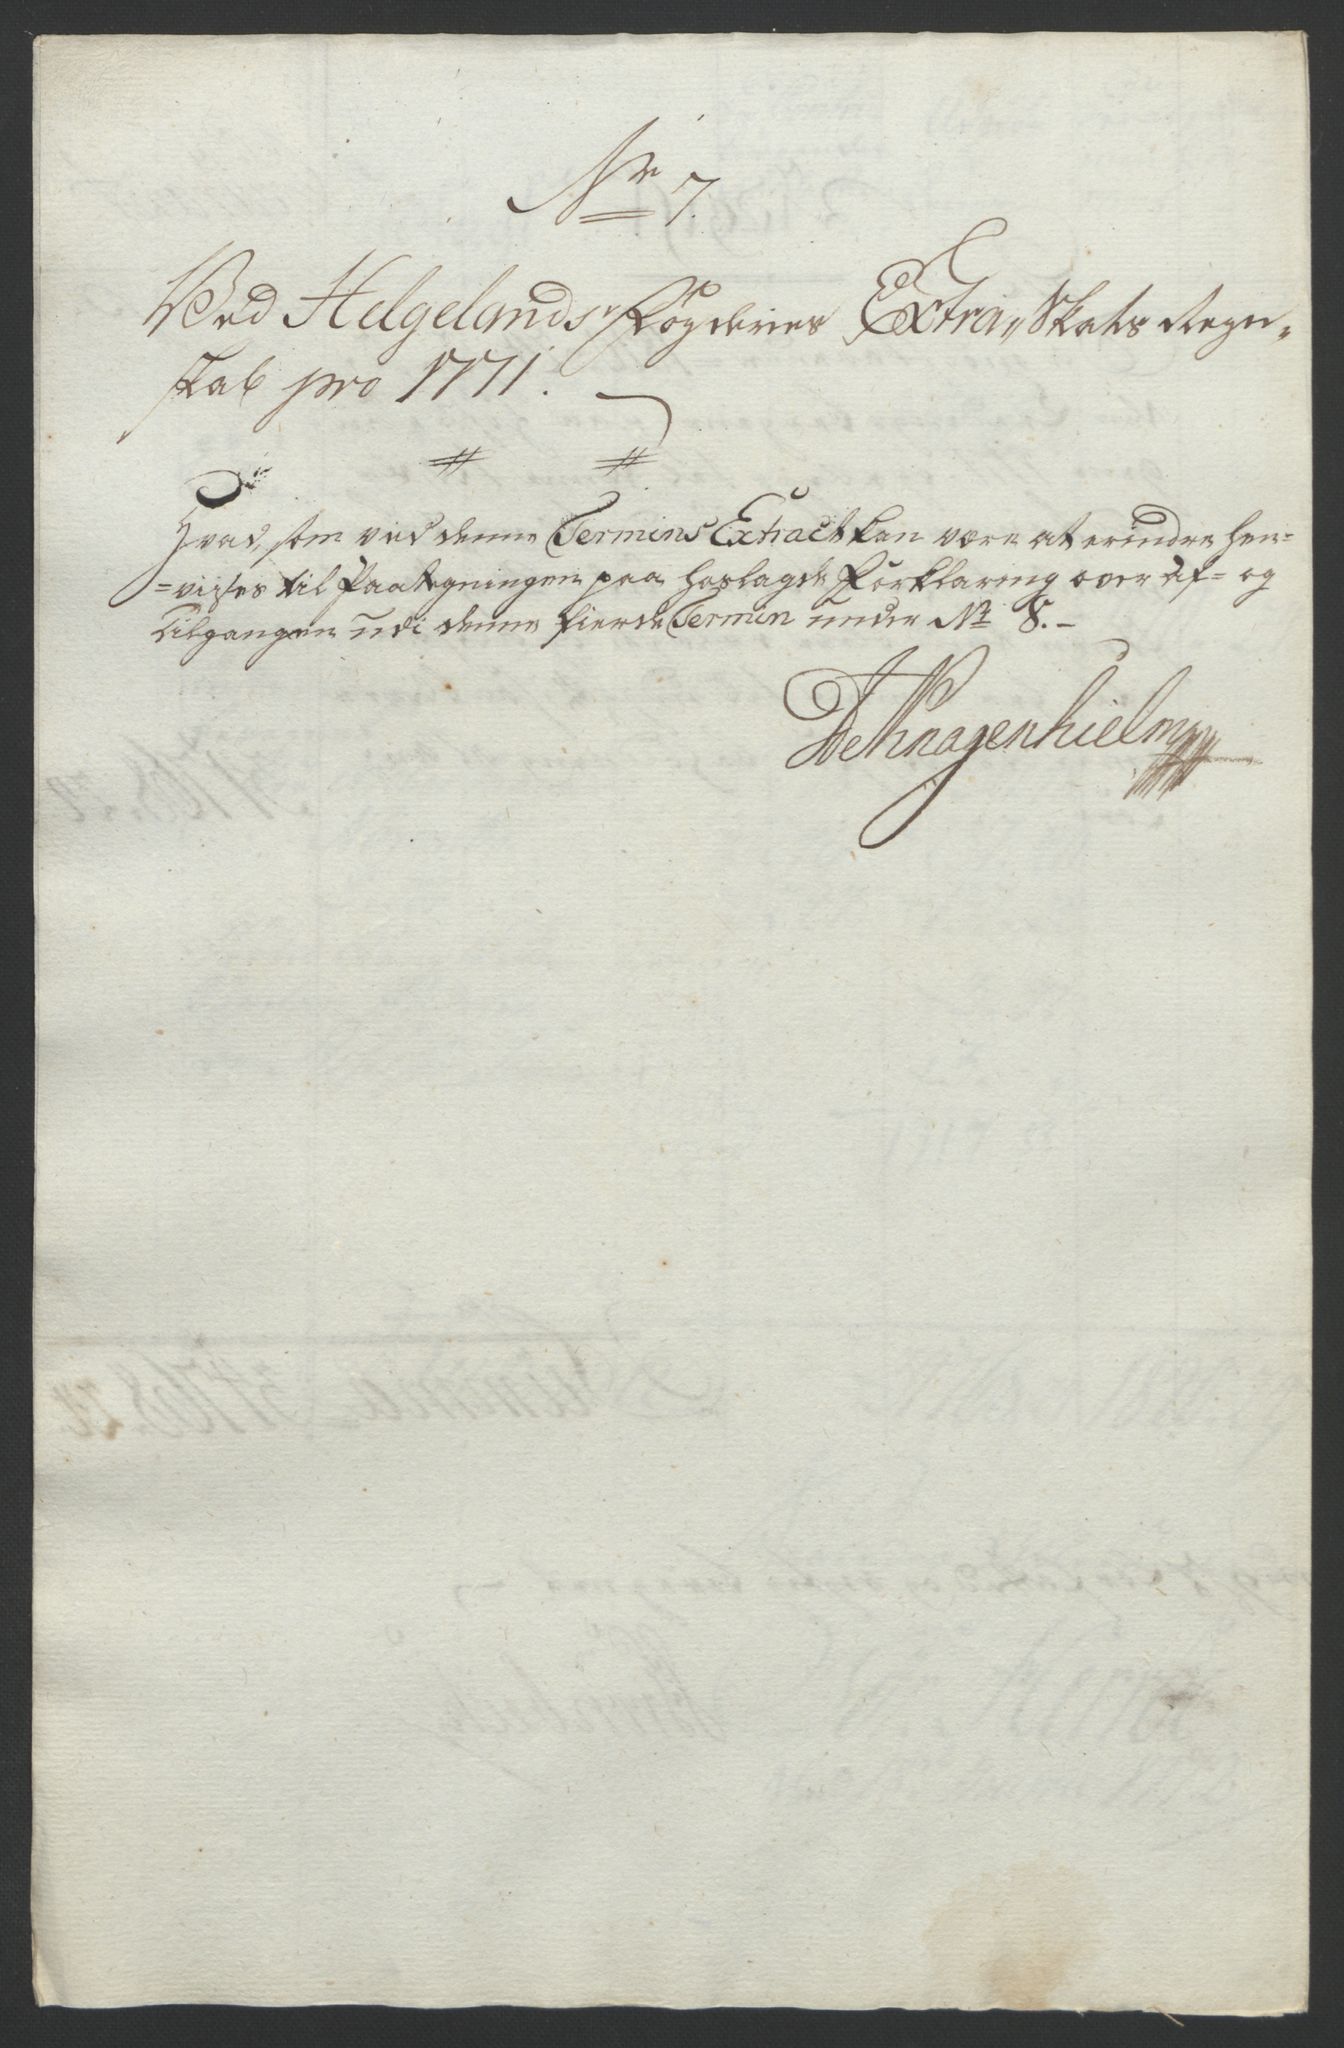 No 7.
Ved Helgelands Fögderies Extra Skats Regn-
skab pro 1771.
Hvad, som ved denne Termins Extract kan være at erindre hen-
=vises til Paategningen paa hoslagde Forklaring over Af= og
Tilgangen udi denne fierde Termin under No 8.-
De Knagenhielm